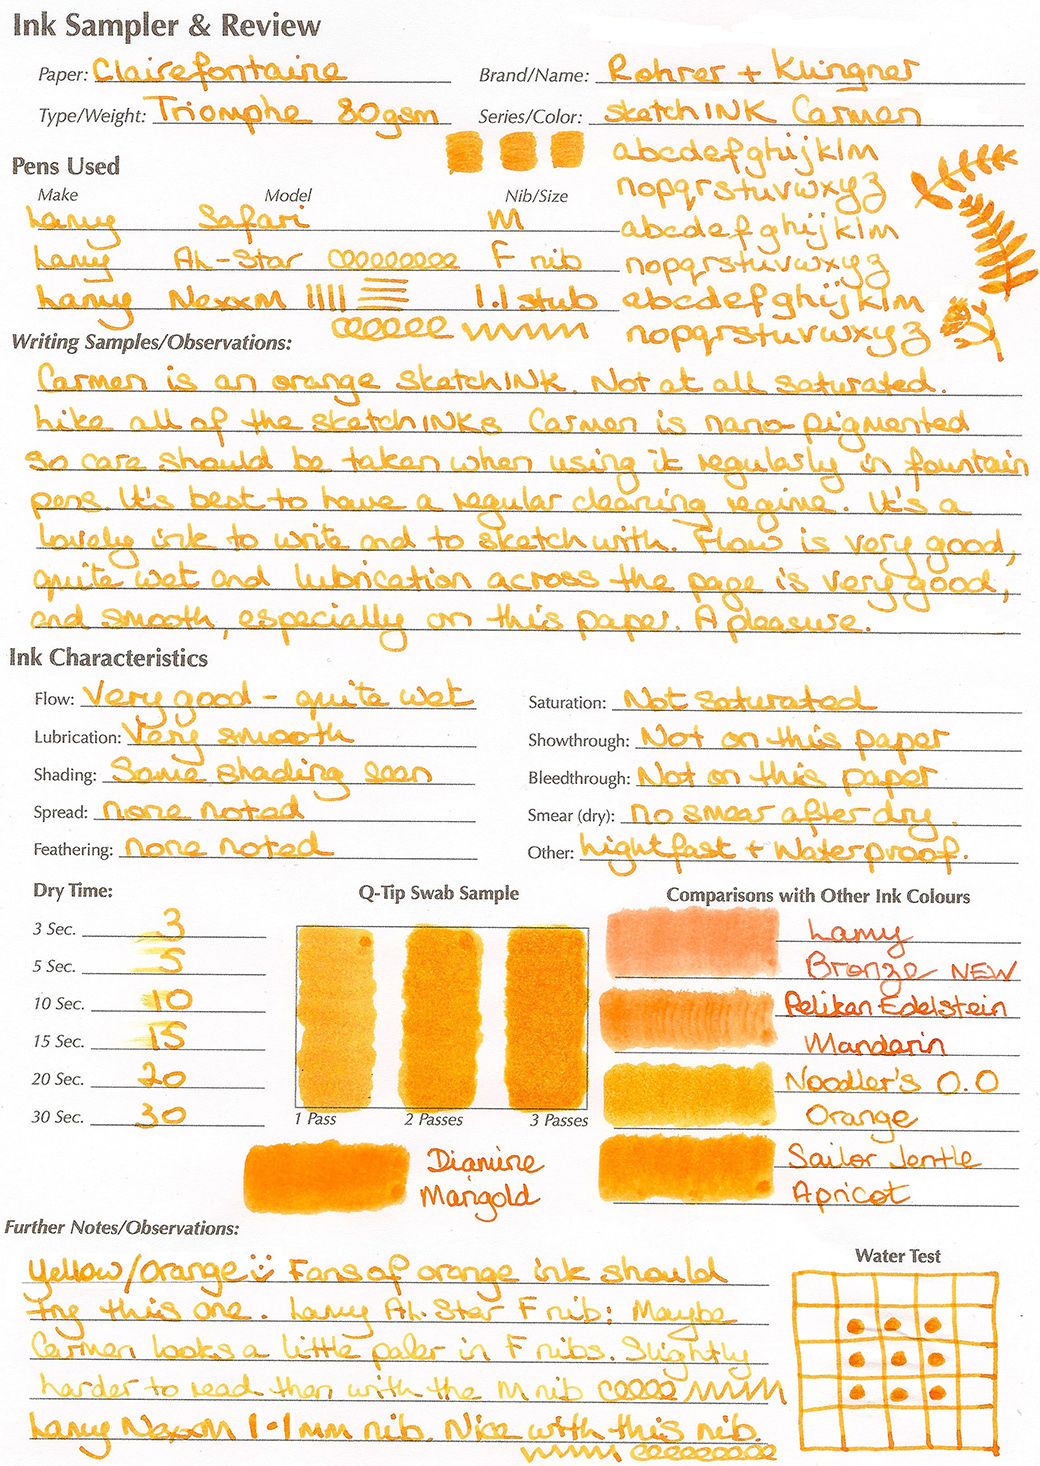 Ink Sampler & Review
Paper: Clairefontaine Brand/Name: Rohrer + Klingner
Type/Weight: Triomphe 80gsm Series/Color: SketchINK Carmen
abcdefghijklm
Pens Used
nopqrstuvwxyz
Make Model Nib/Size
Lamy Safari M
abcdefghijklm
Lamy Al-Star F nib
nopqrstuvwxyz
Lamy NexxM 1.1 stub
abcdefghijklm
nopqrstuvwxyz
Writing Samples/Observations:
Carmen is an orange SketchINK. Not at all saturated.
Like all of the sketchINKs Carmen is nano-pigmented
so care should be taken when using it regularly in fountain
pens. It's best to have a regular cleaning regime. It's a
lovely ink to write and to sketch with. Flow is very good,
quite wet and lubrication across the page is very good,
and smooth, especially on this paper. A pleasure.
Ink Characteristics
Flow: Very good - quite wet Saturation: Not saturated
Lubrication: Very smooth Showthrough: Not on this paper
Shading: Some shading seen Bleedthrough: Not on this paper
Spread: none noted Smear (dry): no smear after dry.
Feathering: none noted Other: Lightfast + Waterproof.
Dry Time: Q-Tip Swab Sample Comparisons with Other Ink Colours
3 Sec. 3
5 Sec. 5
10 Sec. 10
15 Sec. 15
20 Sec. 20
30 Sec. 30
1 Pass 2 Passes 3 Passes
Lamy
Bronze NEW
Pelikan Edelstein
Mandarin
Noodler's O.O
Orange
Sailor Jentle
Apricot
Diamine
Marigold
Further Notes/Observations:
Water Test
Yellow/Orange Fans of orange ink should
try this one. Lamy Al-Star F nib: Maybe
Carmen looks a little paler in F nibs. Slightly
harder to read than with the M nib
Lamy NexxM 1.1mm nib. Nice with this nib.